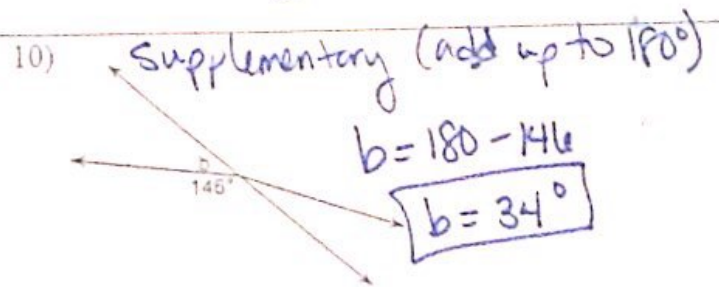 10) Supplementary (add up to 180°)
b = 180 - 146
b
146°
b = 34°